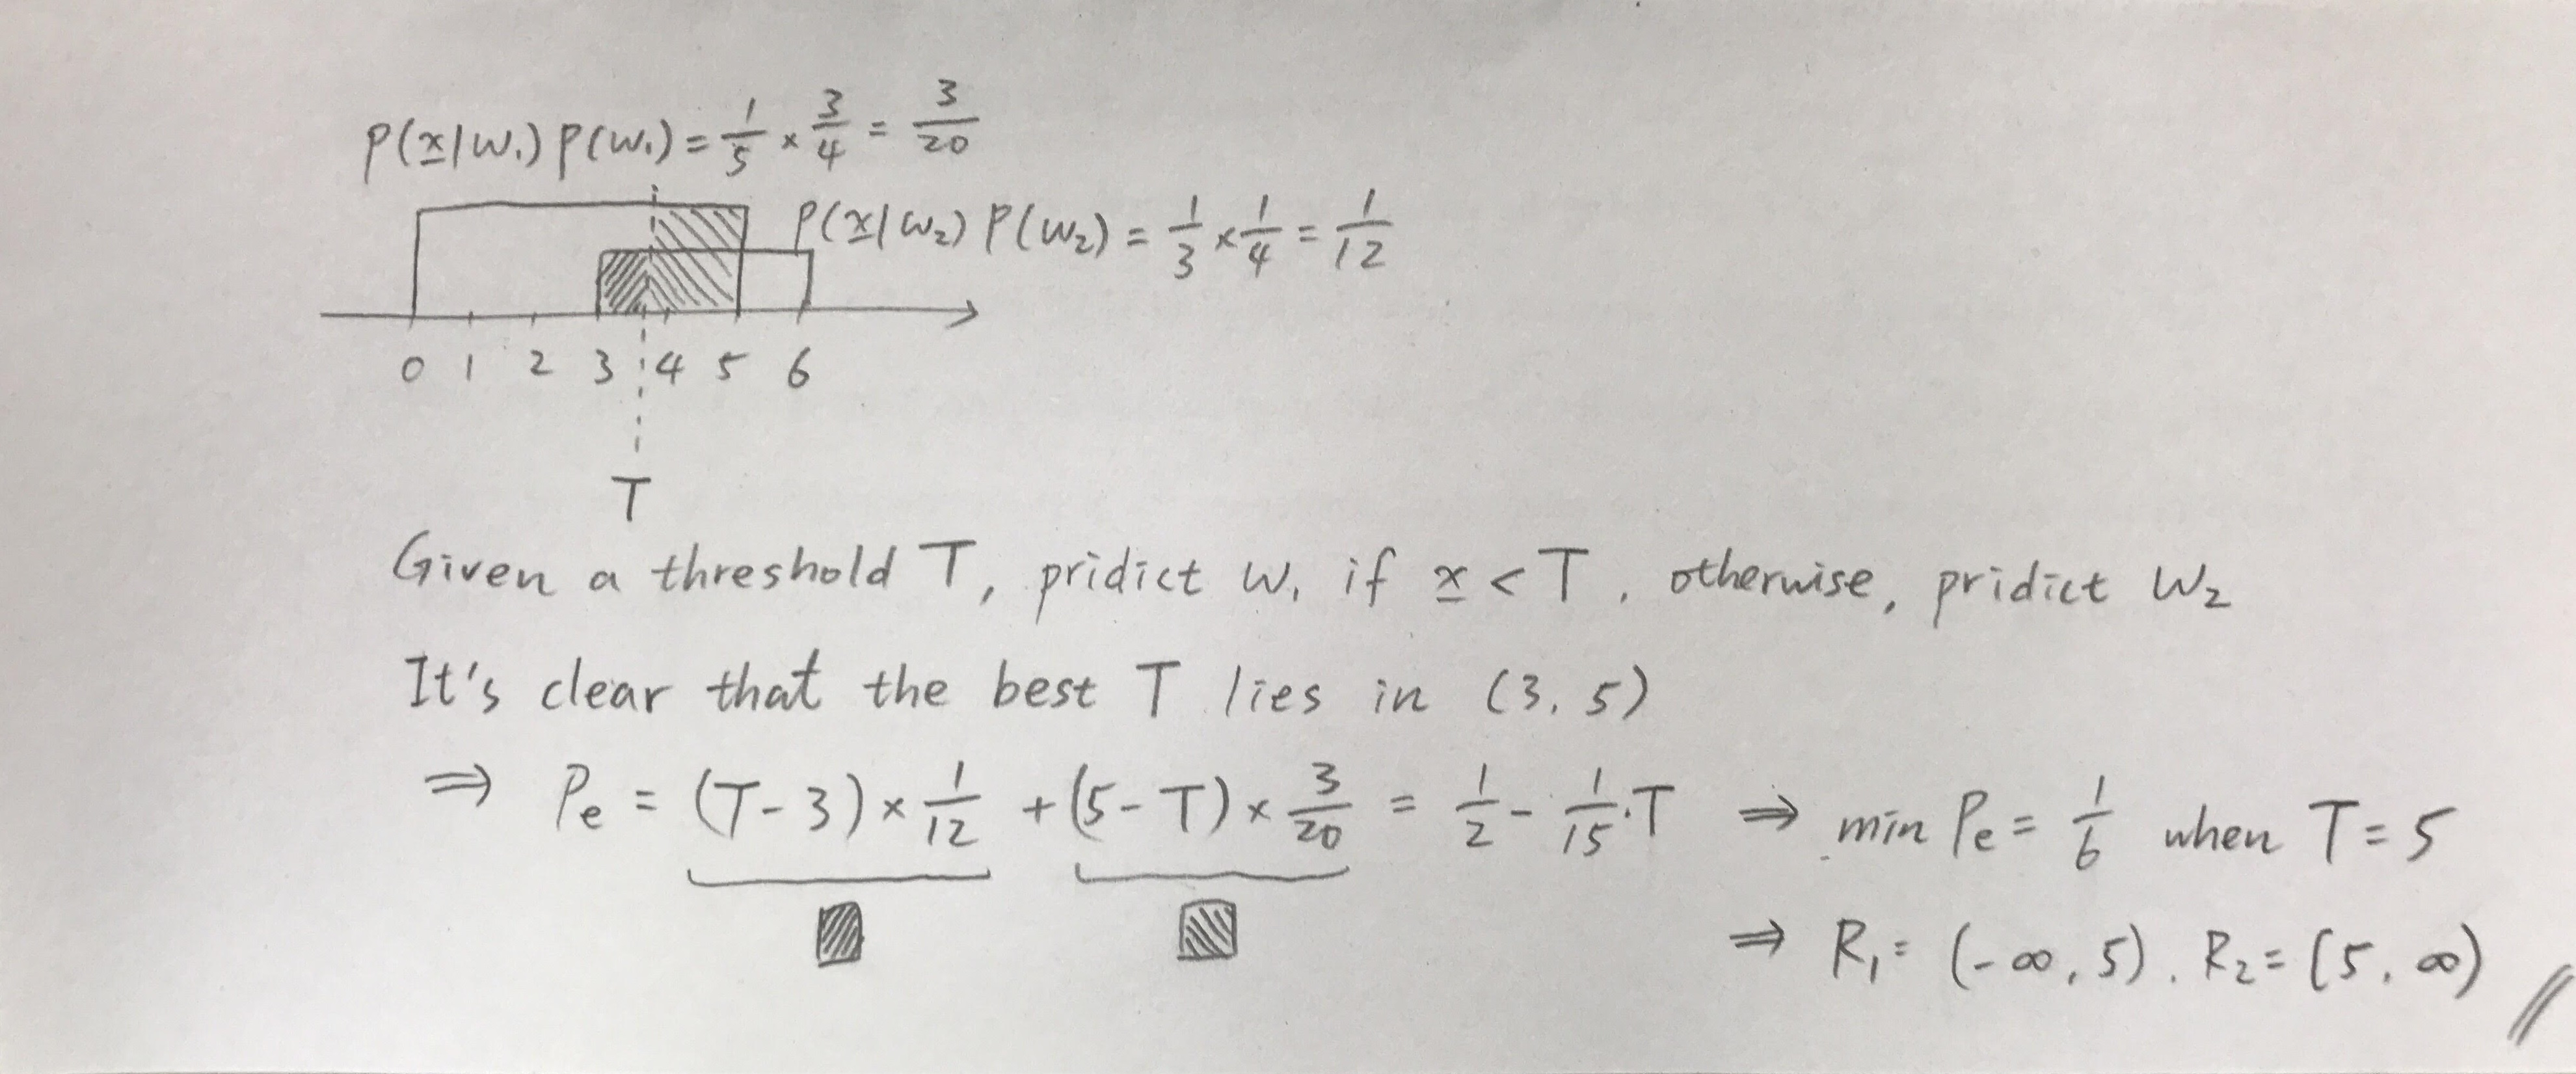 p(x|w₁) p(w₁) = 1/5 × 3/4 = 3/20
p(x|w₂) p(w₂) = 1/3 × 1/4 = 1/12
0 1 2 3 4 5 6
T
Given a threshold T, pridict w₁ if x < T, otherwise, pridict w₂
It's clear that the best T lies in (3, 5)
⇒ Pe = (T-3) × 1/12 + (5-T) × 3/20 = 1/2 - 1/15·T ⇒ min Pe = 1/6 when T = 5
⇒ R₁ = (-∞, 5). R₂ = [5, ∞)